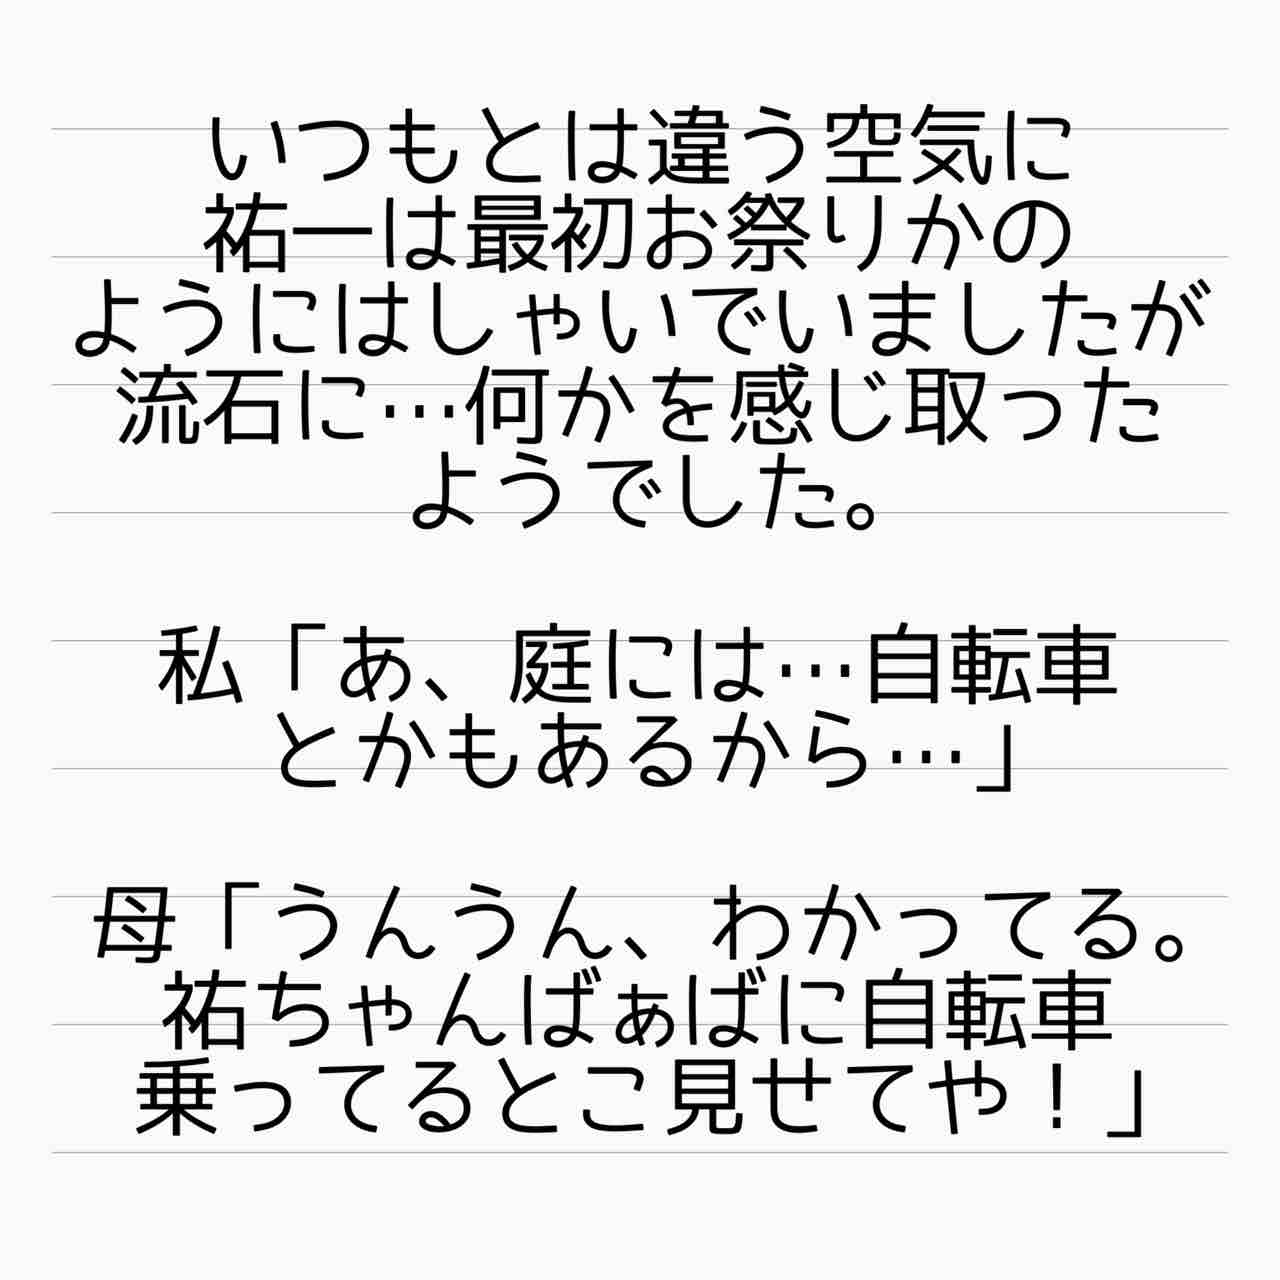 いつもとは違う空気に
祐一は最初お祭りかの
ようにはしゃいでいましたが
流石に…何かを感じ取った
ようでした。
私「あ、庭には…自転車
とかもあるから…」
母「うんうん、わかってる。
祐ちゃんばぁばに自転車
乗ってるとこ見せてや！」